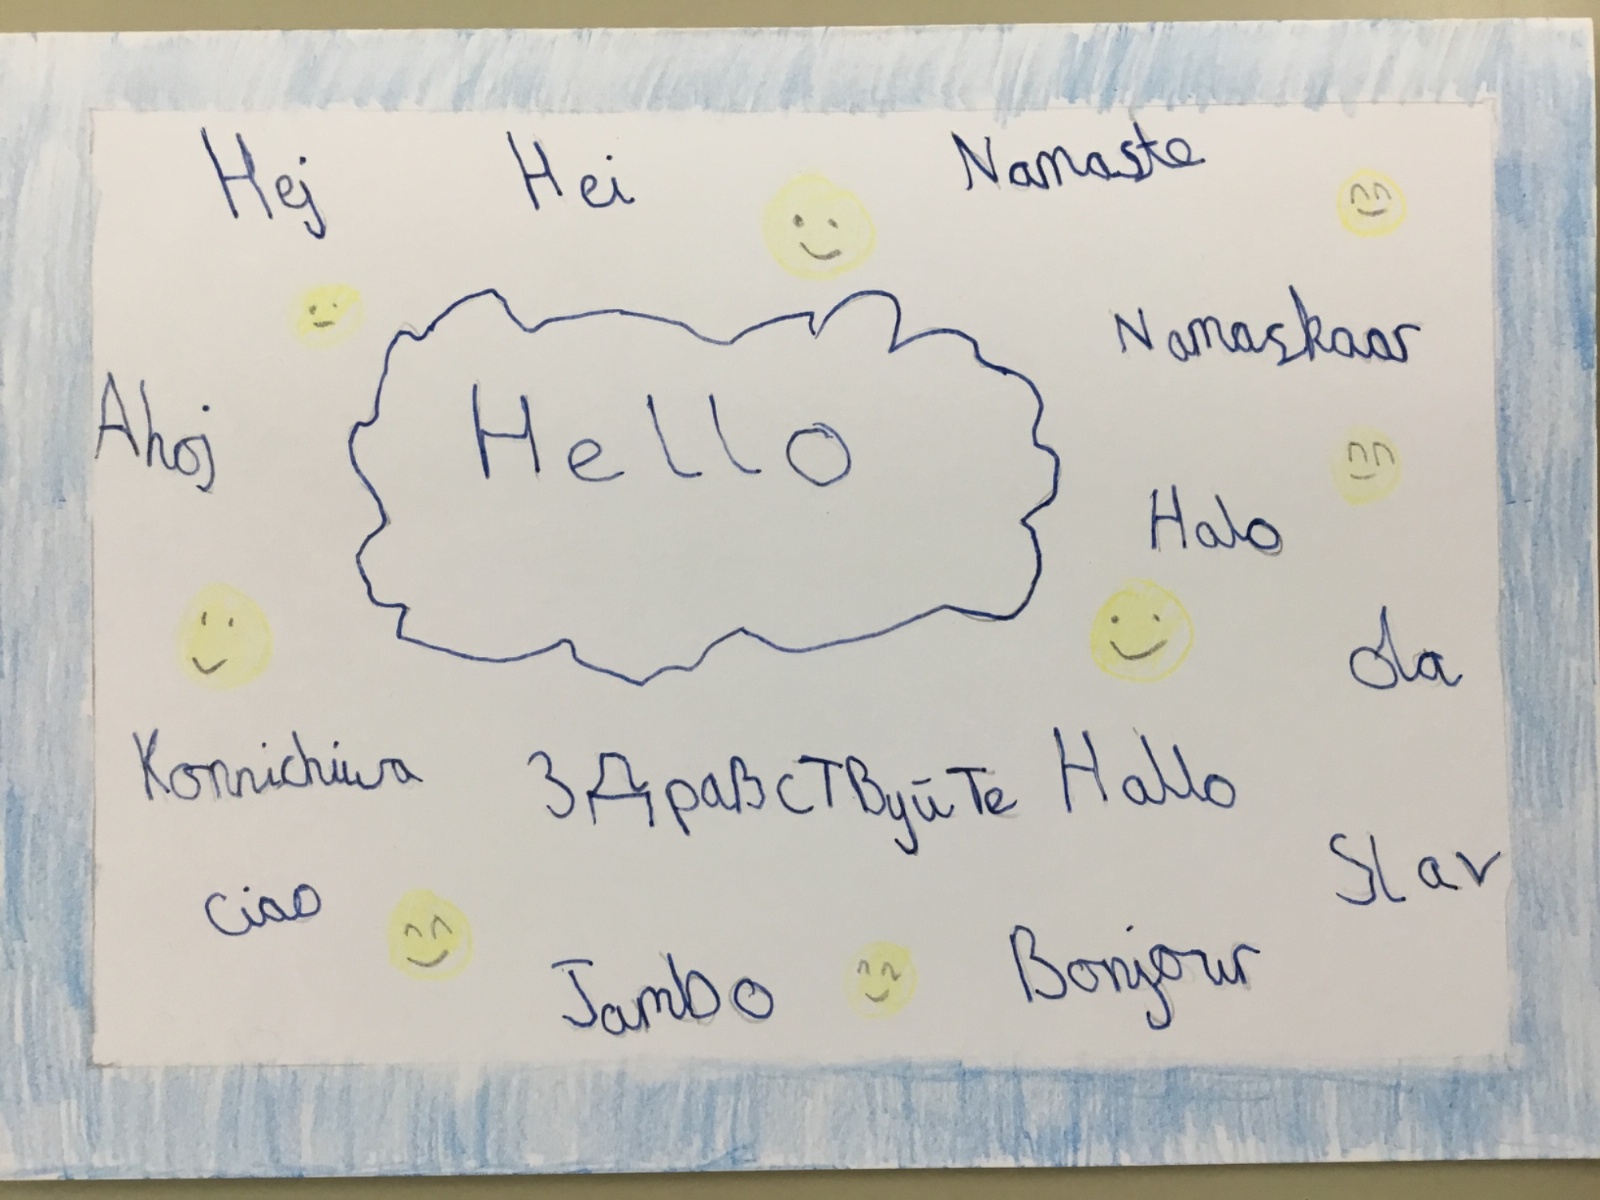 Hej
Hei
Namaste
Namaskaar
Ahoj
Hello
Halo
Ola
Konnichiwa
Здравствуйте
Hallo
Slav
Ciao
Jambo
Bonjour